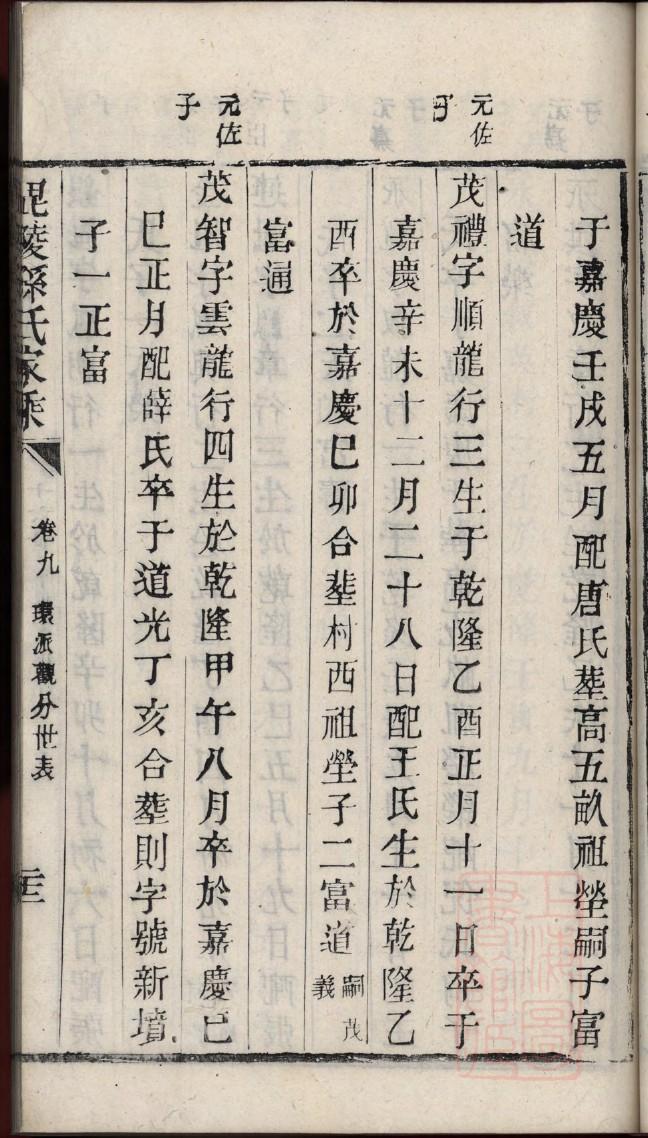 于嘉慶壬戌五月配唐氏塟高五畝祖塋嗣子富
道
元佐
子
茂禮字順龍行三生于乾隆乙酉正月十一日卒于
嘉慶辛未十二月二十八日配王氏生於乾隆乙
酉卒於嘉慶巳卯合塟村西祖塋子二富道嗣茂義
富通
元佐
子
茂智字雲龍行四生於乾隆甲午八月卒於嘉慶巳
巳正月配薛氏卒于道光丁亥合塟則字號新墳
子一正富
毘陵孫氏家乘
卷九
環派觀分世表
二十三